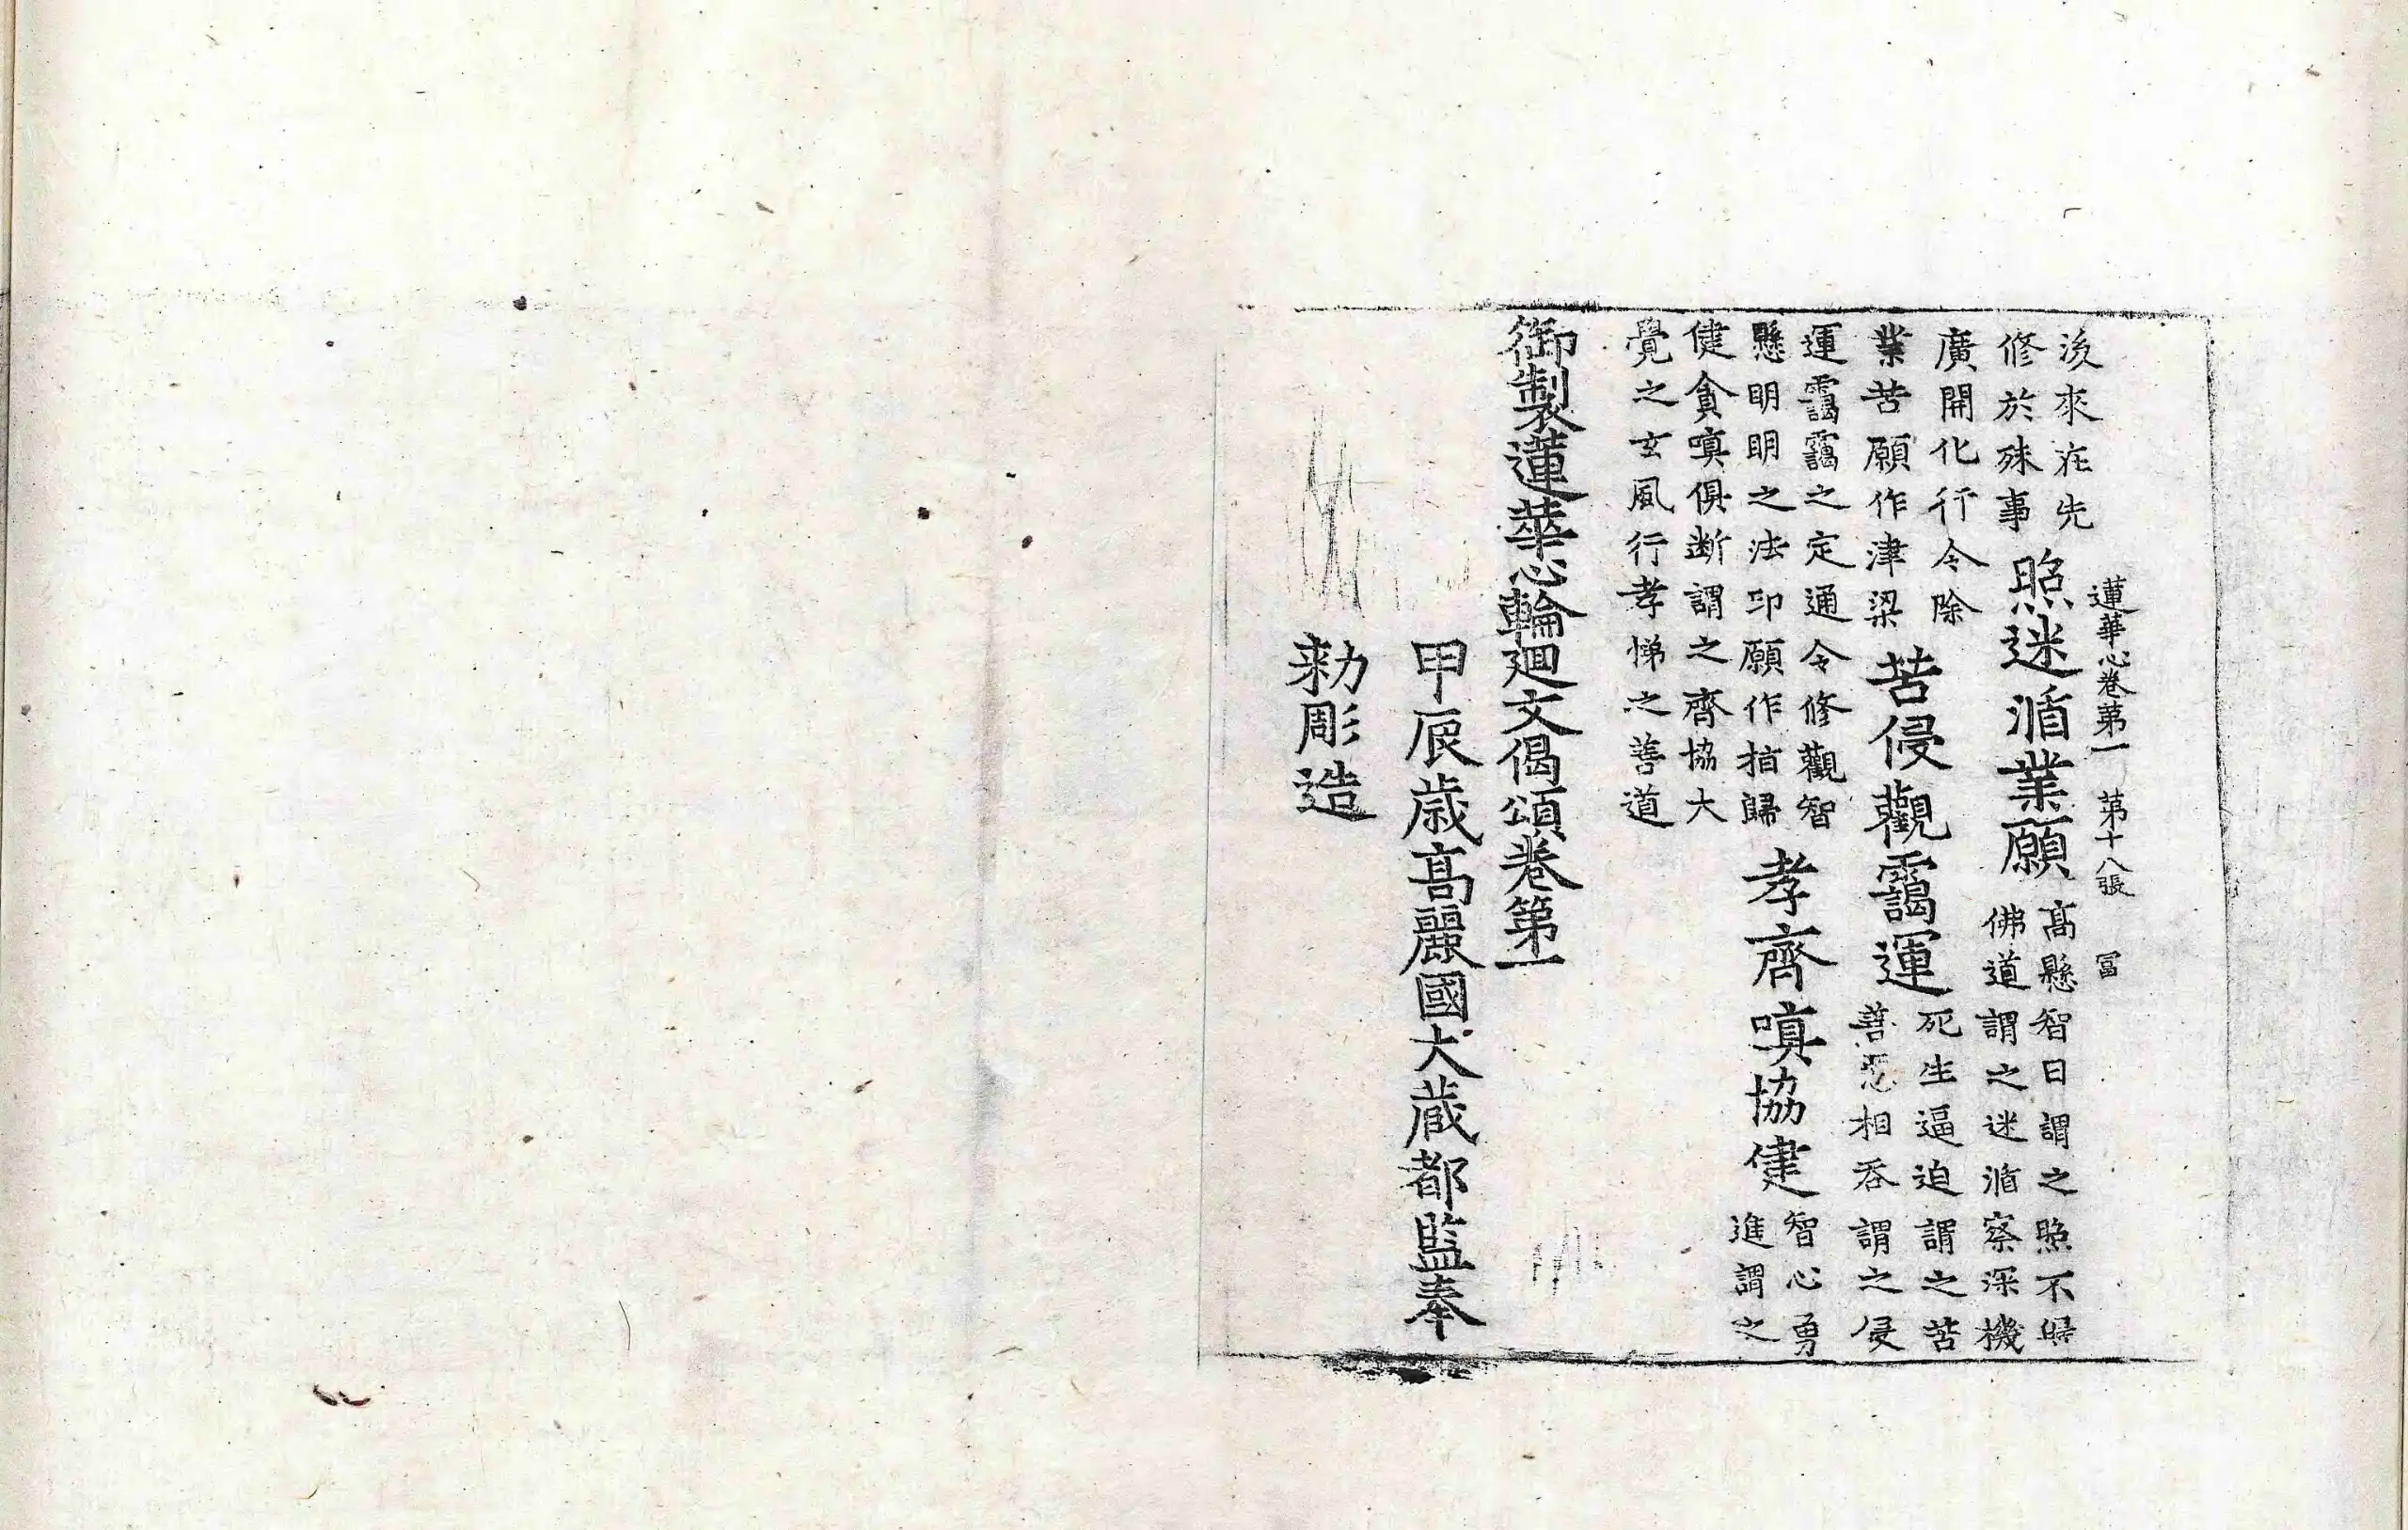 蓮華心卷苐一 苐十八張 冨
後來在先
修於殊事
照迷循業願
高懸智日謂之照不歸
佛道謂之迷循察深機
廣開化行令除
業苦願作津梁
苦侵觀靄運
死生逼迫謂之苦
善惡相吞謂之侵
運靄靄之定通令修觀智
懸明明之法印願作指歸
孝齊嗔協健
智心勇
進謂之
健貪嗔俱断謂之齊協大
覺之玄風行孝悌之善道
御製蓮華心輪廻文偈頌卷第一
甲辰歲高麗國大藏都監奉
勑彫造